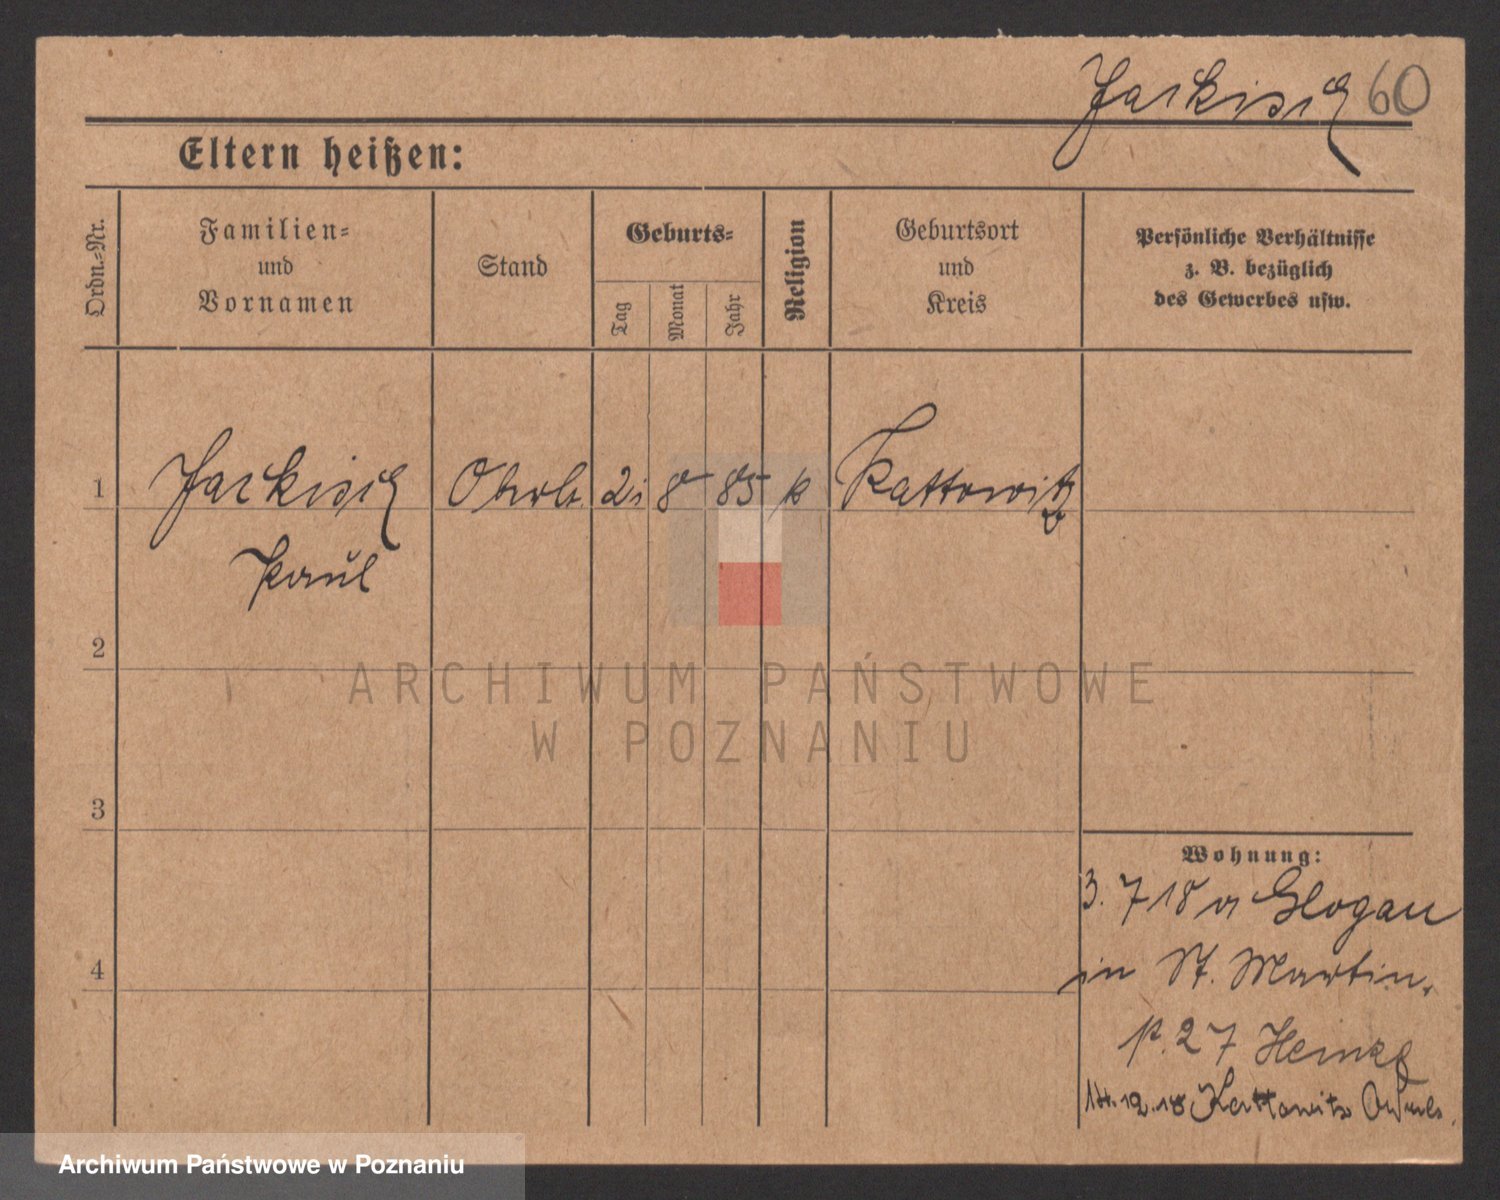 Jackisch 60
Eltern heißen:
Ordn.-Nr.
Familien-
und
Vornamen
Stand
Geburts-
Tag
Monat
Jahr
Religion
Geburtsort
und
Kreis
Persönliche Verhältnisse
z. B. bezüglich
des Gewerbes usw.
1 Jackisch Oberlt. 21 8 85 k Kattowitz
Paul
2
ARCHIWUM PAŃSTWOWE
W POZNANIU
3
Wohnung:
3. 7 18 v Glogau
in St. Martin.
4
p. 27 Heinze
14. 12. 18 Kattowitz
Archiwum Państwowe w Poznaniu